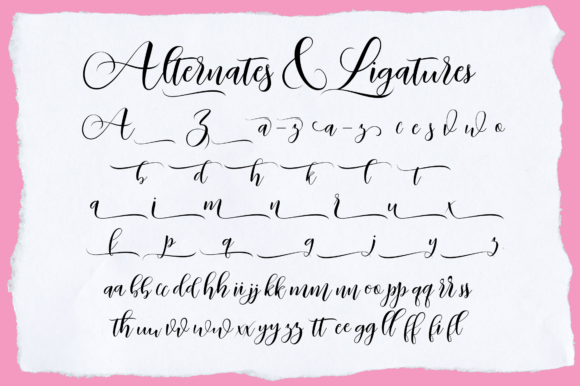 Alternates & Ligatures
A Z a-z a-z c e s v w o
b d h k l t
a i m n r u x
k p q g j y z
aa bb cc dd hh ii jj kk mm nn oo pp qq rr ss
th uu vv ww xx yy zz tt ee gg ll ff fi fl